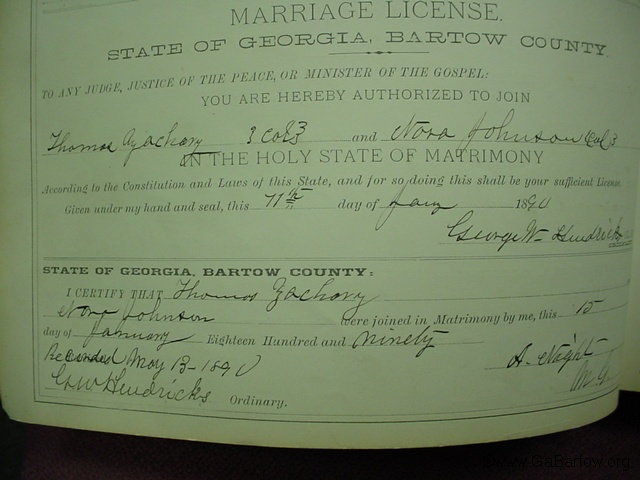 MARRIAGE LICENSE.
STATE OF GEORGIA, BARTOW COUNTY.
TO ANY JUDGE, JUSTICE OF THE PEACE, OR MINISTER OF THE GOSPEL:
YOU ARE HEREBY AUTHORIZED TO JOIN
Thomas Zachary {Col} and Nora Johnson {Col}
IN THE HOLY STATE OF MATRIMONY
According to the Constitution and Laws of this State, and for so doing this shall be your sufficient License.
Given under my hand and seal, this 11th day of Jany 1890
George W Hendricks
STATE OF GEORGIA, BARTOW COUNTY:
I CERTIFY THAT Thomas Zachary
Nora Johnson were joined in Matrimony by me, this 15
day of January Eighteen Hundred and ninety
Recorded May 13-1890 A. Wright
GW Hendricks Ordinary. M.G.
www.GaBartow.org